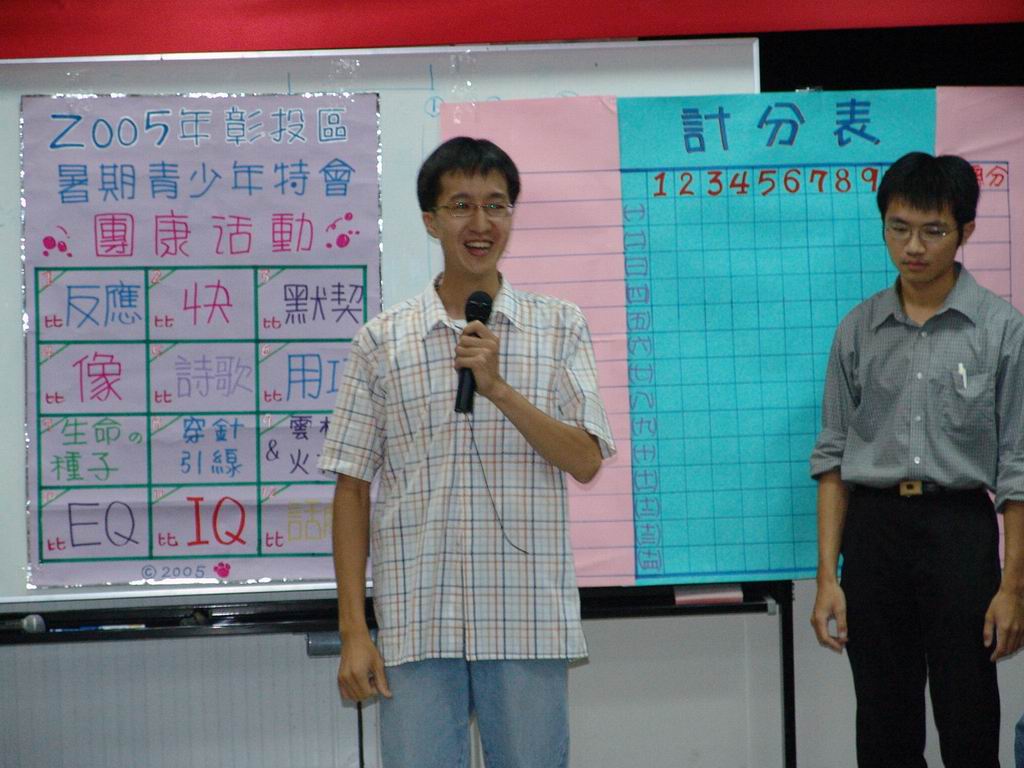 2005年彰投區
暑期青少年特會
團康活動
比反應
比快
比默契
比像
比詩歌
比用
生命の種子
穿針引線
雲
&火
比EQ
比IQ
比話
©2005
計分表
1 2 3 4 5 6 7 8 9
分